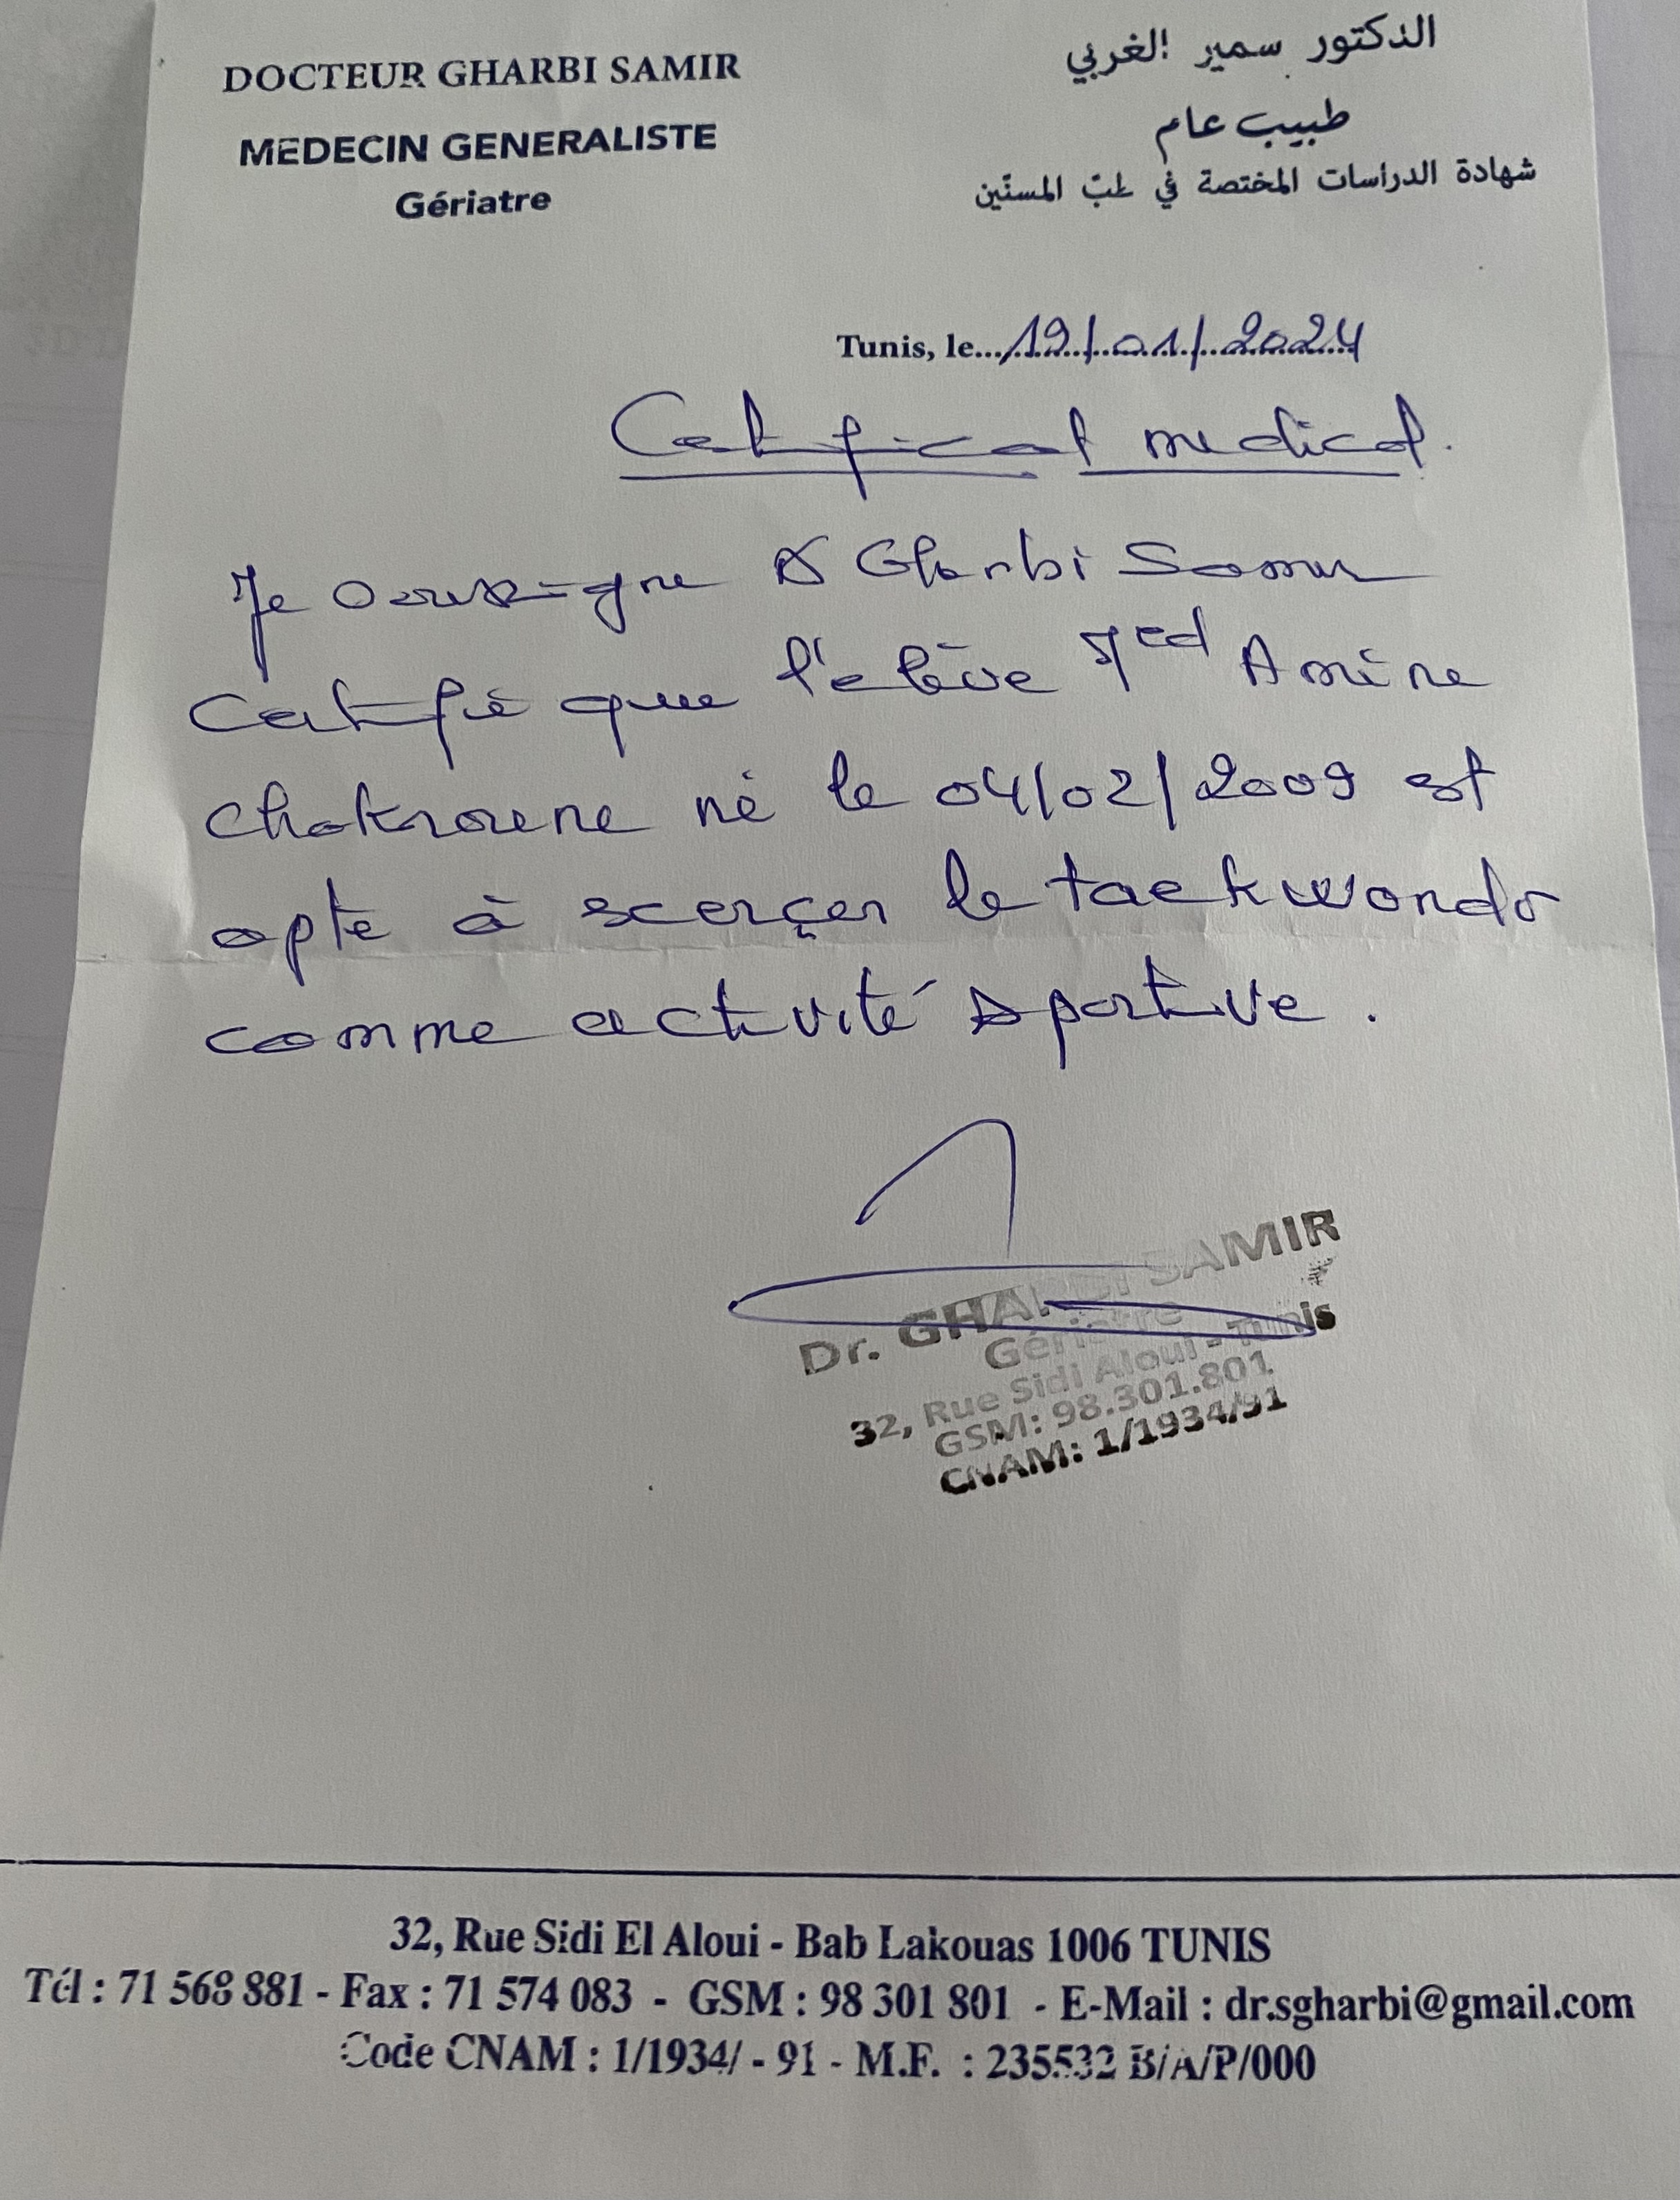 DOCTEUR GHARBI SAMIR
MEDECIN GENERALISTE
Gériatre
الدكتور سمير الغربي
طبيب عام
شهادة الدراسات المختصة في طبّ المسنّين
Tunis, le...19/01/2024
Certificat medical.
Je soussigne Dr Gharbi Samir
Certifie que l'elève Med Amine
Chakroune né le 04/02/2009 est
apte à exerçer le taekwondo
comme activité sportive.
Dr. GHARBI SAMIR
Gériatre
32, Rue Sidi Aloui - Tunis
GSM: 98.301.801
CNAM: 1/1934/91
32, Rue Sidi El Aloui - Bab Lakouas 1006 TUNIS
Tél : 71 568 881 - Fax : 71 574 083 - GSM : 98 301 801 - E-Mail : dr.sgharbi@gmail.com
Code CNAM : 1/1934/ - 91 - M.F. : 235532 B/A/P/000